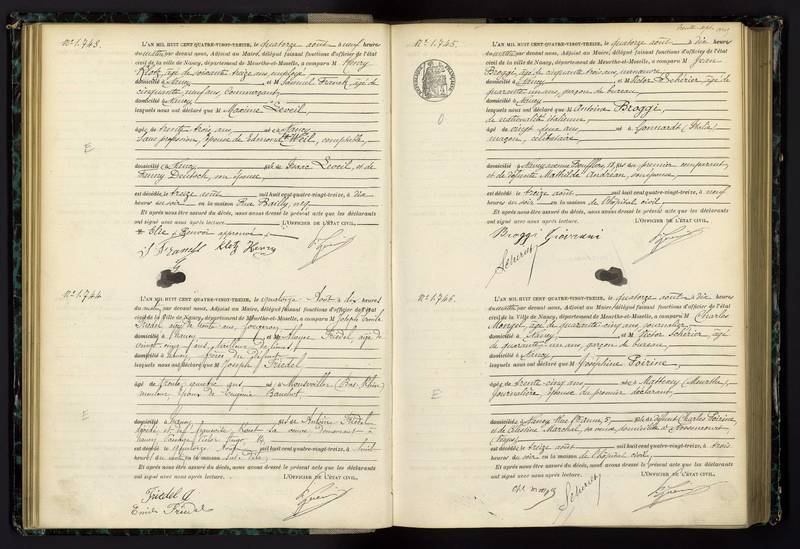 N° 1.743.
L'AN MIL HUIT CENT QUATRE-VINGT-TREIZE, le quatorze août à neuf heures
du matin par devant nous, Adjoint au Maire, délégué faisant fonctions d'officier de l'état
civil de la ville de Nancy, département de Meurthe-et-Moselle, a comparu M Henry
Klotz, âgé de soixante treize ans, employé
domicilié à Nancy et M Samuel Franck, âgé de
cinquante neuf ans, Commerçant,
domicilié à Nancy
lesquels nous ont déclaré que M Maxime Leveil,
âgée de trente trois ans née à Nancy
sans profession, épouse de Edmond Weil, comptable,
E
domicilié à Nancy fille de Isaac Leveil, et de
Fanny Deutsch, son épouse
est décédée, le treize août mil huit cent quatre-vingt-treize, à dix
heures du soir en la maison Rue Bailly,
Et après nous être assuré du décès, nous avons dressé le présent acte que les déclarants
ont signé avec nous après lecture. L'OFFICIER DE L'ÉTAT CIVIL,
Klotz Henry
N° 1.744
L'AN MIL HUIT CENT QUATRE-VINGT-TREIZE, le quatorze Août à dix heures
du matin par devant nous, Adjoint au Maire, délégué faisant fonctions d'officier de l'état
civil de la Ville de Nancy, département de Meurthe-et-Moselle, a comparu M Joseph Emile
Friedel âgé de trente ans,
domicilié à Nancy et M Friedel, âgé de
vingt cinq ans,
domicilié à Nancy, frères du défunt
lesquels nous ont déclaré que M Joseph Friedel
âgé de trente quatre ans né à (Bas-Rhin)
menuisier, époux de Eugénie
E
domicilié à Nancy fils de Antoine Friedel
est décédé le quatorze Août mil huit cent quatre-vingt-treize, à
heures du matin en la maison
Et après nous être assuré du décès, nous avons dressé le présent acte que les déclarants
ont signé avec nous après lecture. L'OFFICIER DE L'ÉTAT CIVIL,
Friedel J
Emile Friedel
N° 1.745.
L'AN MIL HUIT CENT QUATRE-VINGT-TREIZE, le quatorze août à dix heures
du matin par devant nous, Adjoint au Maire, délégué faisant fonctions d'officier de l'état
civil de la ville de Nancy, département de Meurthe-et-Moselle, a comparu M Jean
Broggi, âgé de cinquante trois ans, manœuvre
domicilié à Nancy et M Victor Schérier, âgé de
quarante un ans, garçon de bureau,
domicilié à Nancy
lesquels nous ont déclaré que M Antoine Broggi,
de nationalité italienne
âgé de vingt deux ans né à Lonnardi (Italie)
maçon, célibataire
0
domicilié à Nancy, avenue Boufflers, 18, fils du premier comparant,
et de défunte Mathilde Andréan, son épouse
est décédé, le treize août mil huit cent quatre-vingt-treize, à neuf
heures du soir en la maison de l'hôpital civil,
Et après nous être assuré du décès, nous avons dressé le présent acte que les déclarants
ont signé avec nous après lecture. L'OFFICIER DE L'ÉTAT CIVIL,
Broggi Giovanni
N° 1.746.
L'AN MIL HUIT CENT QUATRE-VINGT-TREIZE, le quatorze août à dix heures
du matin par devant nous, Adjoint au Maire, délégué faisant fonctions d'officier de l'état
civil de la Ville de Nancy, département de Meurthe-et-Moselle, a comparu M Charles
âgé de quarante cinq ans, journalier
domicilié à Nancy et M Victor Schérier, âgé
de quarante un ans, garçon de bureau,
domicilié à Nancy
lesquels nous ont déclaré que M Joséphine Poirine,
âgée de trente cinq ans née à (Meurthe),
journalière, épouse du premier déclarant,
E
domiciliée à Nancy Rue Ste Anne, 5, fille de défunt Charles Poirine,
et de Célestine Marchal, sa veuve, domiciliée à
(Vosges)
est décédée le treize août mil huit cent quatre-vingt-treize, à trois
heures du soir en la maison de l'hôpital civil,
Et après nous être assuré du décès, nous avons dressé le présent acte que les déclarants
ont signé avec nous après lecture. L'OFFICIER DE L'ÉTAT CIVIL,